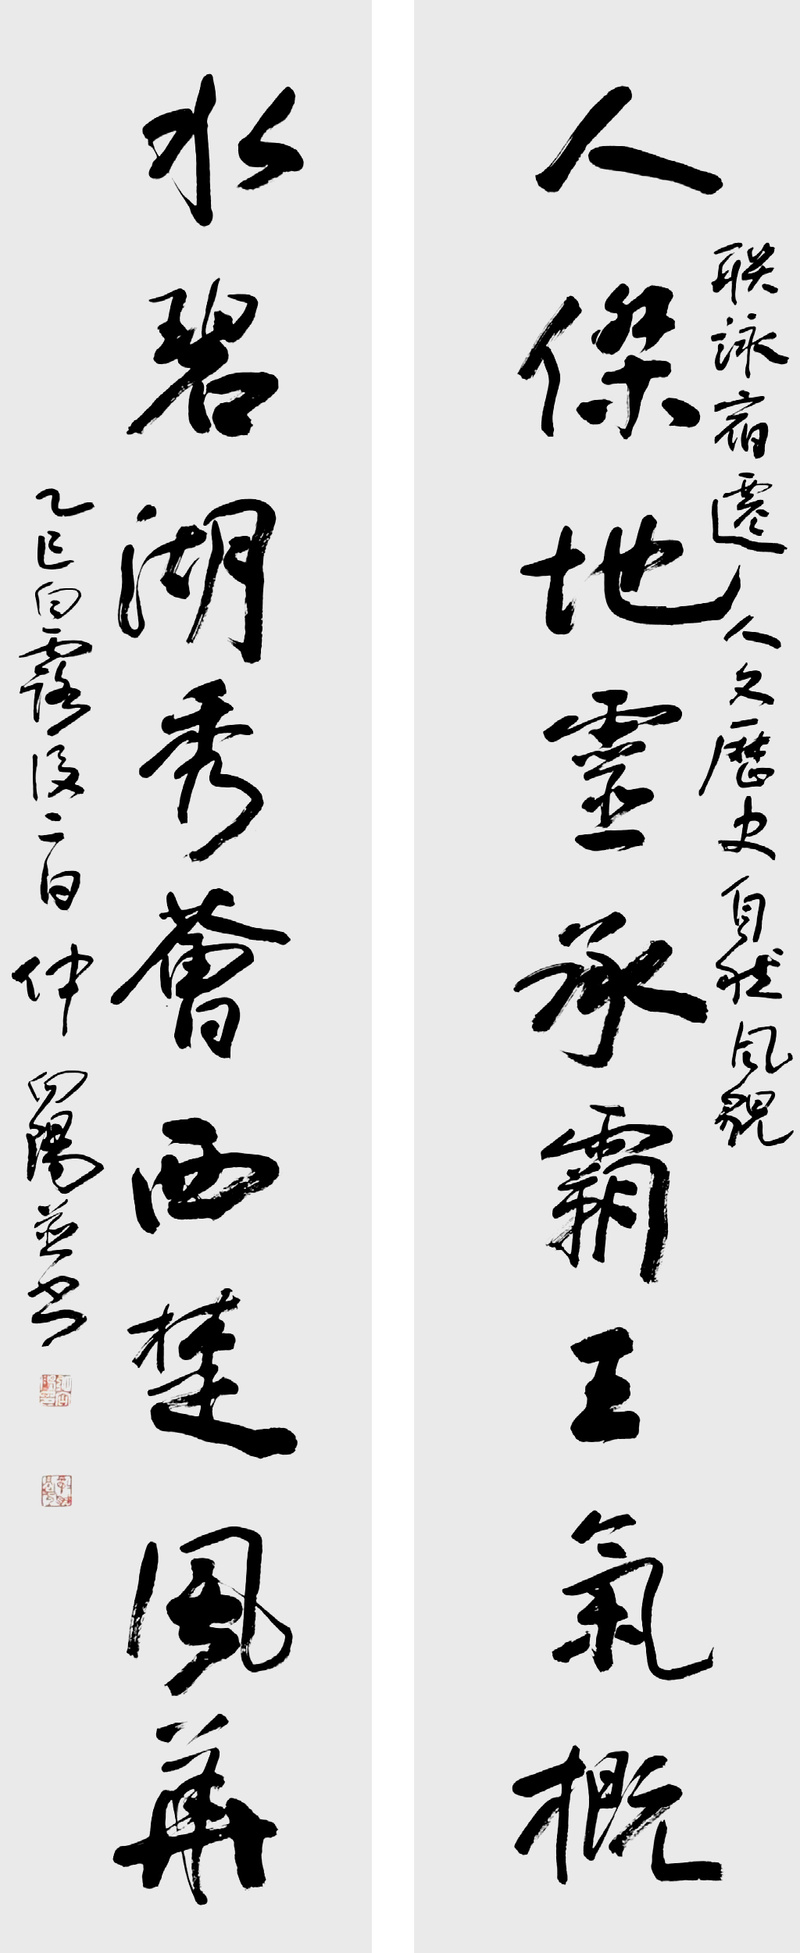 聯詠宿遷人文歷史自然風貌
人傑地靈承霸王氣概
水碧湖秀薈西楚風華
乙巳白露後二日仲向陽並書